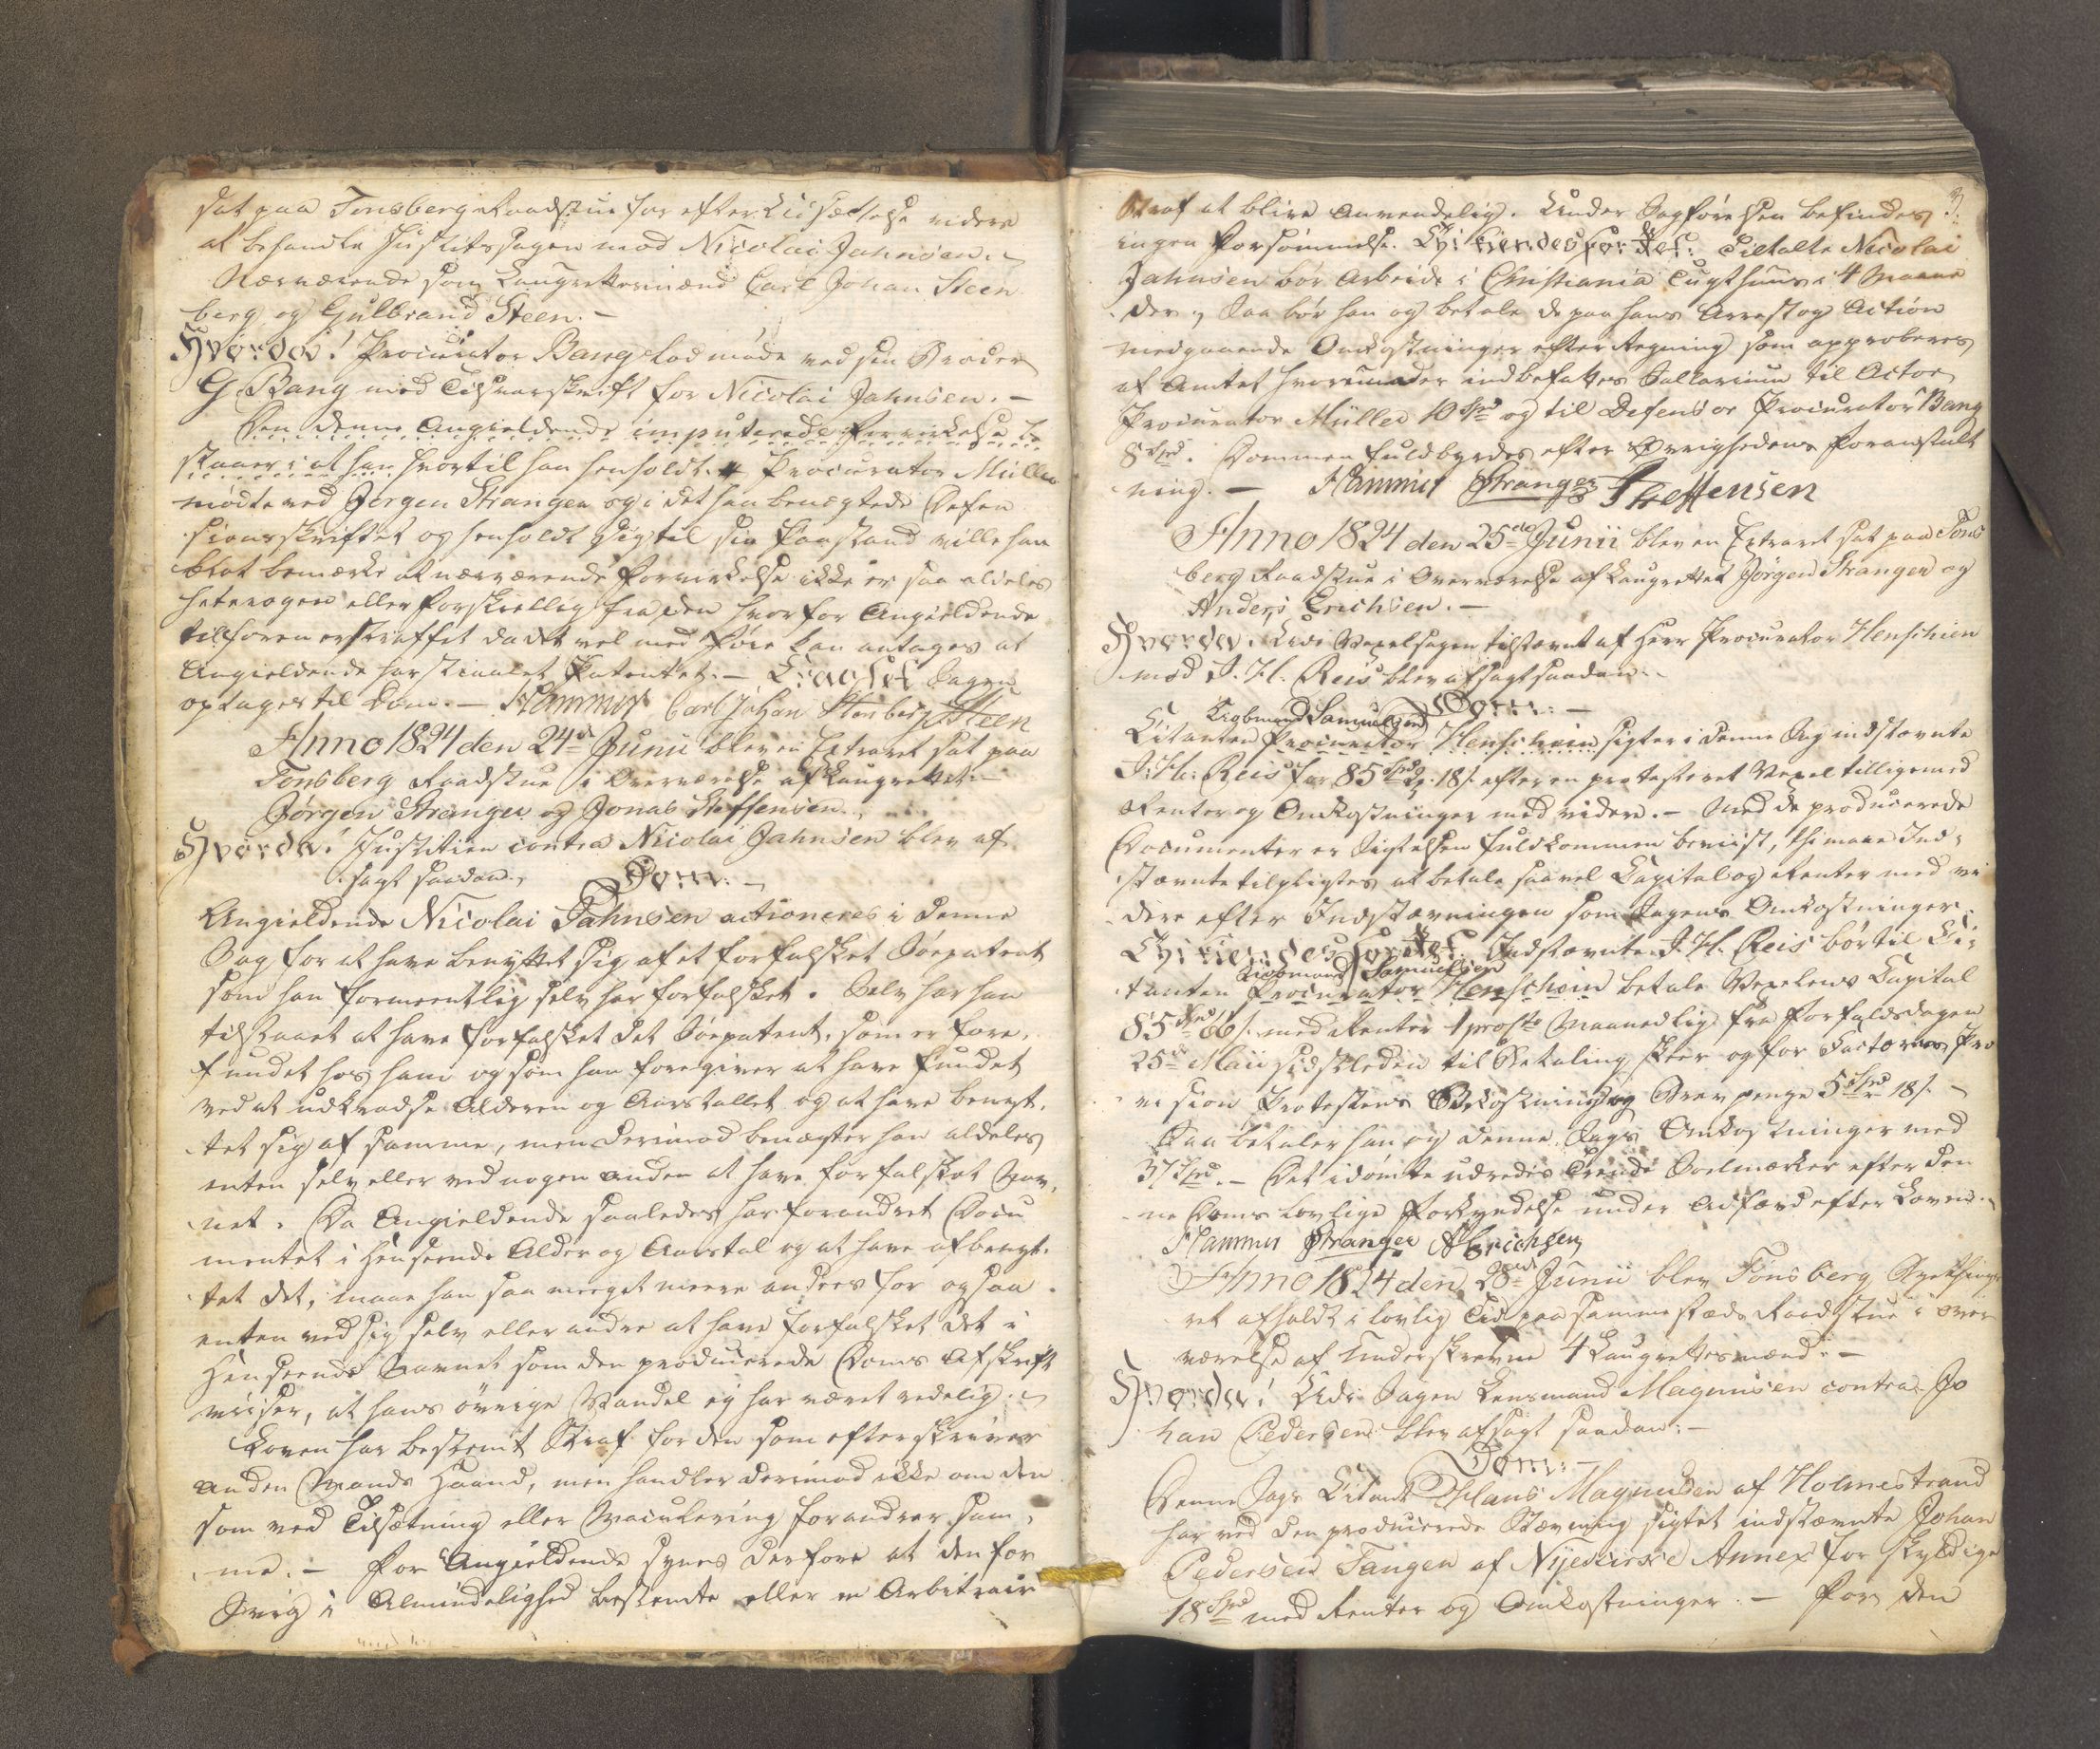 sat paa Tonsberg Raadstue for efter Udsættelse videre
at behandle Justitssagen mod Nicolai Jahnsen.
Nærværende som Laugrettesmænd Carl Johan Steen
berg og Gulbrand Steen. -
Hvorda! Procurator Bang lod møde ved sin Broder
G Bang med Tilsvarskrift for Nicolai Jahnsen. -
Den denne Angieldende imputerede Forvirkelse be
staaer i at han hvortil han henholdt. Procurator Müller
mødte ved Jørgen Stranger og i det han benægtede Defen
sionsskriftet og henholdt sig til sin Paastand ville han
blot bemærke at nærværende Forvirkelse ikke er saa aldeles
heterogen eller forskiellig fra den hvorfor Angieldende
tilforen er straffet da det vel med Føie kan antages at
Angieldende har stiaalet Patentet. - Eragtet Sagen
optages til Dom. - Hammer Carl Johan Stenberg GSteen
Anno 1824 den 24de Junii blev en Extraret sat paa
Tonsberg Raadstue i Overværelse af Laugrettet
Jørgen Stranger og Jonas Steffensen.
Hvorda! Justitien contra Nicolai Jahnsen blev af
sagt saadan
Dom: -
Angieldende Nicolai Jahnsen actioneres i denne
Sag for at have benyttet sig af et forfalsket Søepatent
som han formeentlig selv har forfalsket. Selv har han
tilstaaet at have forfalsket det Søepatent, som er fore,
fundet hos ham og som han foregiver at have fundet
ved at udkradse Alderen og Aarstallet og at have benyt,
tet sig af samme, men derimod benægter han aldeles
enten selv eller ved nogen anden at have forfalsket Nav,
net. Da Angieldende saaledes har forandret Docu
mentet i Henseende Alder og Aarstal og at have afbenyt,
tet det, maae han saa meeget meere ansees for ogsaa
enten ved sig selv eller andre at have forfalsket det i
Henseende Navnet som den producerede Doms Afskrift
viiser, at hans øvrige Vandel ej har været redelig.
Loven har bestemt Straf for den som efterskriver
anden Mands Haand, men handler derimod ikke om den
som ved Tilsætning eller Maculering forandrer sam,
me. - For Angieldende synes derfore at den for
Svig i Almindelighed bestemte eller en Arbitrair
3.
Straf at blive anvendelig. Under Sagførelsen befindes
ingen Forsømmelse. Thi kiendes for Ret: Tiltalte Nicolai
Jahnsen bør arbeide i Christiania Tugthuus i 4 Maane
der, Saa bør han og betale de paa hans Arrest og Action
medgaaende Omkostninger efter Regning som approberes
af Amtet hvorunder indbefattes Sallarium til Actor
Procurator Müller 10 Spd og til Defensor Procurator Bang
8 Spd. Dommen fuldbyrdes efter Øvrighedens Foranstalt
ning. - Hammer Stranger JSteffensen
Anno 1824 den 25de Junii blev en Extraret sat paa Tons
berg Raadstue i Overværelse af Laugrettet Jørgen Stranger og
Anders Erichsen. -
Hvorda. Udi Vexelsagen tilstævnt af Herr Procurator Henschien
mod J. H. Reis blev afsagt saadan
Dom: -
Kiøbmand Samuelsen
Citanten Procurator Henschien sigter i denne Sag indstævnte
J. H. Reis for 85 Spd 3 18 s. efter en protesteret Vexel tilligemed
Renter og Omkostninger med videre. - Med de producerede
Documenter er Sigtelsen fuldkommen beviist, thi maae Ind,
stævnte tilpligtes at betale saavel Capital og Renter med vi
dere efter Indstævningen som Sagens Omkostninger.
Thi kiendes for Ret: Indstævnte J. H. Reis bør til Ci,
Kiøbmand Samuelsen
tanten Procurator Henschien betale Vexelens Capital
85 Spd 66 s. med Renter 1 proCto Maanedlig fra Forfaldsdagen
25de Maii sidstleden til Betaling skeer og for Factorens Pro
vision Protestens Bekostning og Brevpenge 5 Spd 18 s. -
Saa betaler han og denne Sags Omkostninger med
37 Spd. - Det idømte udredes trende Soelmærker efter den
ne Doms lovlige Forkyndelse under Adfærd efter Loven. -
Hammer Stranger AErichsen
Anno 1824 den 28de Junii blev Tonsberg Byethings
ret afholdt i lovlig Tid paa sammesteds Raadstue i Over
værelse af Underskrevne 4 Laugrettesmænd. -
Hvorda! Udi Sagen Lensmand Magnusen contra Jo
han Pedersen blev afsagt saadan: -
Dom: -
Denne Sags Citant Hans Magnusen af Holmestrand
har ved den producerede Stævning sigtet indstævnte Johan
Pedersen Tangen af Nykirke Annex for skyldige
18 Spd med Renter og Omkostninger. - For den